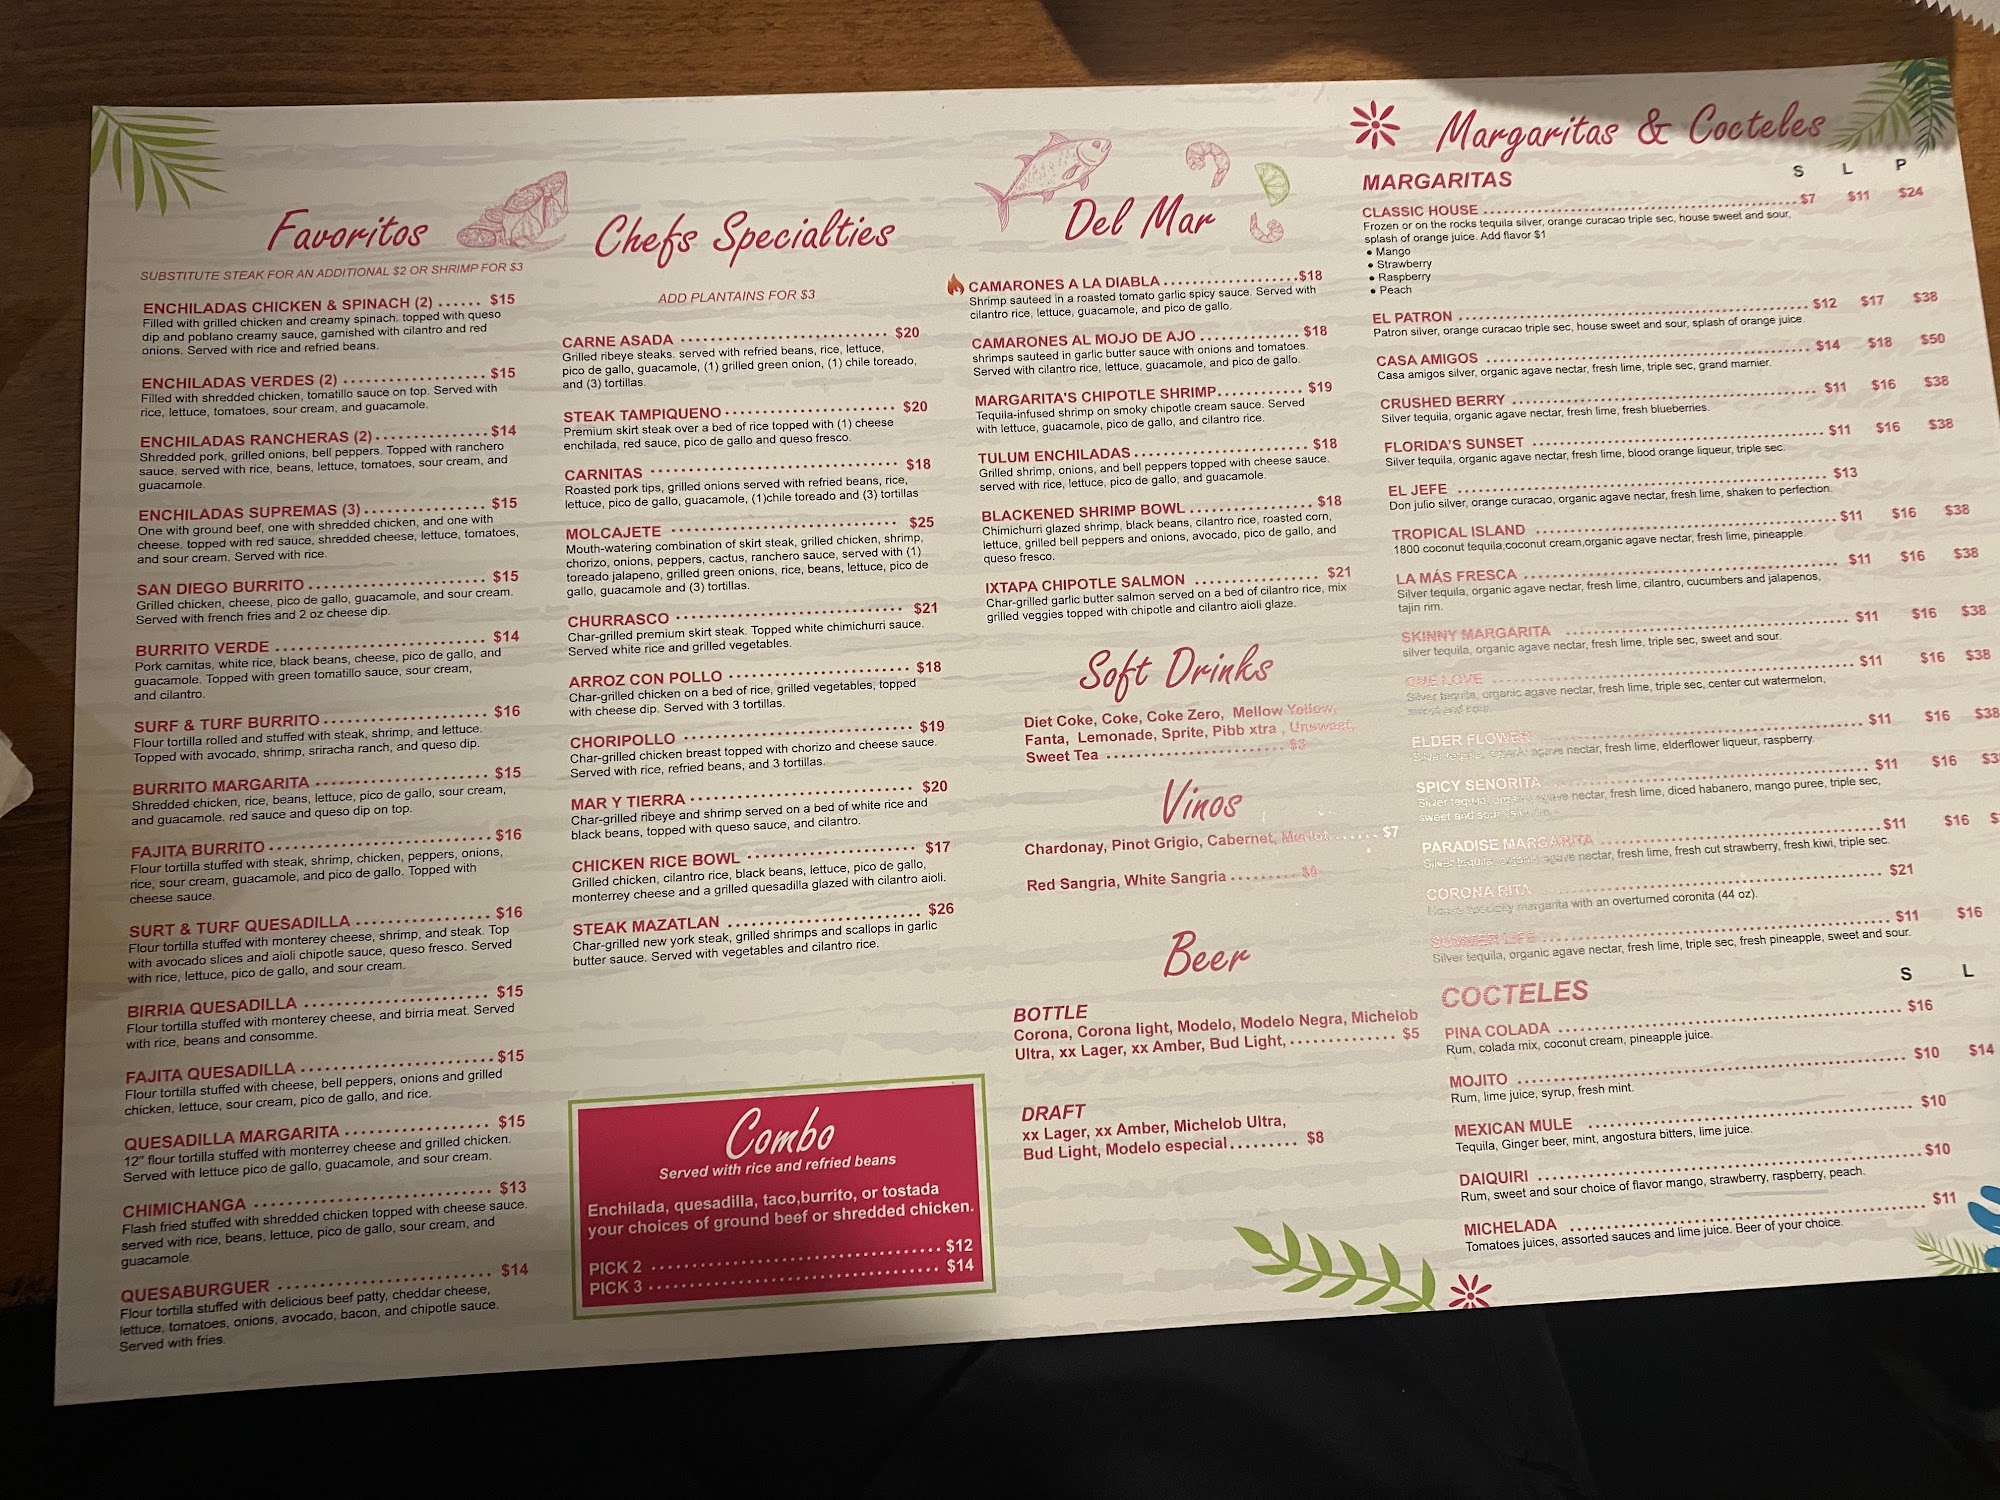 Favoritos
SUBSTITUTE STEAK FOR AN ADDITIONAL $2 OR SHRIMP FOR $3
ENCHILADAS CHICKEN & SPINACH (2) ...... $15
Filled with grilled chicken and creamy spinach. topped with queso
dip and poblano creamy sauce, garnished with cilantro and red
onions. Served with rice and refried beans.
ENCHILADAS VERDES (2) .................. $15
Filled with shredded chicken, tomatillo sauce on top. Served with
rice, lettuce, tomatoes, sour cream, and guacamole.
ENCHILADAS RANCHERAS (2) .............. $14
Shredded pork, grilled onions, bell peppers. Topped with ranchero
sauce. served with rice, beans, lettuce, tomatoes, sour cream, and
guacamole.
ENCHILADAS SUPREMAS (3) ............... $15
One with ground beef, one with shredded chicken, and one with
cheese. topped with red sauce, shredded cheese, lettuce, tomatoes,
and sour cream. Served with rice.
SAN DIEGO BURRITO ...................... $15
Grilled chicken, cheese, pico de gallo, guacamole, and sour cream.
Served with french fries and 2 oz cheese dip.
BURRITO VERDE .......................... $14
Pork carnitas, white rice, black beans, cheese, pico de gallo, and
guacamole. Topped with green tomatillo sauce, sour cream,
and cilantro.
SURF & TURF BURRITO .................... $16
Flour tortilla rolled and stuffed with steak, shrimp, and lettuce.
Topped with avocado, shrimp, sriracha ranch, and queso dip.
BURRITO MARGARITA ..................... $15
Shredded chicken, rice, beans, lettuce, pico de gallo, sour cream,
and guacamole. red sauce and queso dip on top.
FAJITA BURRITO .......................... $16
Flour tortilla stuffed with steak, shrimp, chicken, peppers, onions,
rice, sour cream, guacamole, and pico de gallo. Topped with
cheese sauce.
SURT & TURF QUESADILLA ................ $16
Flour tortilla stuffed with monterey cheese, shrimp, and steak. Top
with avocado slices and aioli chipotle sauce, queso fresco. Served
with rice, lettuce, pico de gallo, and sour cream.
BIRRIA QUESADILLA ...................... $15
Flour tortilla stuffed with monterey cheese, and birria meat. Served
with rice, beans and consomme.
FAJITA QUESADILLA ....................... $15
Flour tortilla stuffed with cheese, bell peppers, onions and grilled
chicken, lettuce, sour cream, pico de gallo, and rice.
QUESADILLA MARGARITA .................. $15
12" flour tortilla stuffed with monterrey cheese and grilled chicken.
Served with lettuce pico de gallo, guacamole, and sour cream.
CHIMICHANGA ............................ $13
Flash fried stuffed with shredded chicken topped with cheese sauce.
served with rice, beans, lettuce, pico de gallo, sour cream, and
guacamole.
QUESABURGUER .......................... $14
Flour tortilla stuffed with delicious beef patty, cheddar cheese,
lettuce, tomatoes, onions, avocado, bacon, and chipotle sauce.
Served with fries.
Chefs Specialties
ADD PLANTAINS FOR $3
CARNE ASADA ............................ $20
Grilled ribeye steaks. served with refried beans, rice, lettuce,
pico de gallo, guacamole, (1) grilled green onion, (1) chile toreado,
and (3) tortillas.
STEAK TAMPIQUENO ...................... $20
Premium skirt steak over a bed of rice topped with (1) cheese
enchilada, red sauce, pico de gallo and queso fresco.
CARNITAS ................................ $18
Roasted pork tips, grilled onions served with refried beans, rice,
lettuce, pico de gallo, guacamole, (1)chile toreado and (3) tortillas
MOLCAJETE .............................. $25
Mouth-watering combination of skirt steak, grilled chicken, shrimp,
chorizo, onions, peppers, cactus, ranchero sauce, served with (1)
toreado jalapeno, grilled green onions, rice, beans, lettuce, pico de
gallo, guacamole and (3) tortillas.
CHURRASCO .............................. $21
Char-grilled premium skirt steak. Topped white chimichurri sauce.
Served white rice and grilled vegetables.
ARROZ CON POLLO ....................... $18
Char-grilled chicken on a bed of rice, grilled vegetables, topped
with cheese dip. Served with 3 tortillas.
CHORIPOLLO .............................. $19
Char-grilled chicken breast topped with chorizo and cheese sauce.
Served with rice, refried beans, and 3 tortillas.
MAR Y TIERRA ............................ $20
Char-grilled ribeye and shrimp served on a bed of white rice and
black beans, topped with queso sauce, and cilantro.
CHICKEN RICE BOWL ...................... $17
Grilled chicken, cilantro rice, black beans, lettuce, pico de gallo,
monterrey cheese and a grilled quesadilla glazed with cilantro aioli.
STEAK MAZATLAN ......................... $26
Char-grilled new york steak, grilled shrimps and scallops in garlic
butter sauce. Served with vegetables and cilantro rice.
Combo
Served with rice and refried beans
Enchilada, quesadilla, taco,burrito, or tostada
your choices of ground beef or shredded chicken.
PICK 2 .................................. $12
PICK 3 .................................. $14
Del Mar
CAMARONES A LA DIABLA .................. $18
Shrimp sauteed in a roasted tomato garlic spicy sauce. Served with
cilantro rice, lettuce, guacamole, and pico de gallo.
CAMARONES AL MOJO DE AJO ............. $18
shrimps sauteed in garlic butter sauce with onions and tomatoes.
Served with cilantro rice, lettuce, guacamole, and pico de gallo.
MARGARITA'S CHIPOTLE SHRIMP ........... $19
Tequila-infused shrimp on smoky chipotle cream sauce. Served
with lettuce, guacamole, pico de gallo, and cilantro rice.
TULUM ENCHILADAS ....................... $18
Grilled shrimp, onions, and bell peppers topped with cheese sauce.
served with rice, lettuce, pico de gallo, and guacamole.
BLACKENED SHRIMP BOWL ................. $18
Chimichurri glazed shrimp, black beans, cilantro rice, roasted corn,
lettuce, grilled bell peppers and onions, avocado, pico de gallo, and
queso fresco.
IXTAPA CHIPOTLE SALMON ................ $21
Char-grilled garlic butter salmon served on a bed of cilantro rice, mix
grilled veggies topped with chipotle and cilantro aioli glaze.
Soft Drinks
Diet Coke, Coke, Coke Zero, Mellow Yellow,
Fanta, Lemonade, Sprite, Pibb xtra , Unsweet,
Sweet Tea ........................ $3
Vinos
Chardonay, Pinot Grigio, Cabernet, Merlot ....... $7
Red Sangria, White Sangria .........
Beer
BOTTLE
Corona, Corona light, Modelo, Modelo Negra, Michelob
Ultra, xx Lager, xx Amber, Bud Light, .............. $5
DRAFT
xx Lager, xx Amber, Michelob Ultra,
Bud Light, Modelo especial ......... $8
Margaritas & Cocteles
MARGARITAS S L P
CLASSIC HOUSE .......................... $7 $11 $24
Frozen or on the rocks tequila silver, orange curacao triple sec, house sweet and sour,
splash of orange juice. Add flavor $1
• Mango
• Strawberry
• Raspberry
• Peach
EL PATRON .............................. $12 $17 $38
Patron silver, orange curacao triple sec, house sweet and sour, splash of orange juice.
CASA AMIGOS ............................ $14 $18 $50
Casa amigos silver, organic agave nectar, fresh lime, triple sec, grand marnier.
CRUSHED BERRY .......................... $11 $16 $38
Silver tequila, organic agave nectar, fresh lime, fresh blueberries.
FLORIDA'S SUNSET ....................... $11 $16 $38
Silver tequila, organic agave nectar, fresh lime, blood orange liqueur, triple sec.
EL JEFE .................................. $13
Don julio silver, orange curacao, organic agave nectar, fresh lime, shaken to perfection.
TROPICAL ISLAND ........................ $11 $16 $38
1800 coconut tequila,coconut cream,organic agave nectar, fresh lime, pineapple.
LA MÁS FRESCA .......................... $11 $16 $38
Silver tequila, organic agave nectar, fresh lime, cilantro, cucumbers and jalapenos,
tajin rim.
SKINNY MARGARITA ...................... $11 $16 $38
silver tequila, organic agave nectar, fresh lime, triple sec, sweet and sour.
ONE LOVE ................................ $11 $16 $38
Silver tequila, organic agave nectar, fresh lime, triple sec, center cut watermelon,
sweet and sour.
ELDER FLOWER ........................... $11 $16 $38
Silver tequila, organic agave nectar, fresh lime, elderflower liqueur, raspberry.
SPICY SENORITA .......................... $11 $16
Silver tequila, organic agave nectar, fresh lime, diced habanero, mango puree, triple sec,
sweet and sour,
PARADISE MARGARITA ..................... $11 $16
Silver tequila, organic agave nectar, fresh lime, fresh cut strawberry, fresh kiwi, triple sec.
CORONA RITA ............................. $21
House specialty margarita with an overturned coronita (44 oz).
SUMMER LIFE ............................. $11 $16
Silver tequila, organic agave nectar, fresh lime, triple sec, fresh pineapple, sweet and sour.
COCTELES S L
PINA COLADA ............................. $16
Rum, colada mix, coconut cream, pineapple juice.
MOJITO ................................... $10 $14
Rum, lime juice, syrup, fresh mint.
MEXICAN MULE ............................ $10
Tequila, Ginger beer, mint, angostura bitters, lime juice.
DAIQUIRI ................................. $10
Rum, sweet and sour choice of flavor mango, strawberry, raspberry, peach.
MICHELADA ............................... $11
Tomatoes juices, assorted sauces and lime juice. Beer of your choice.